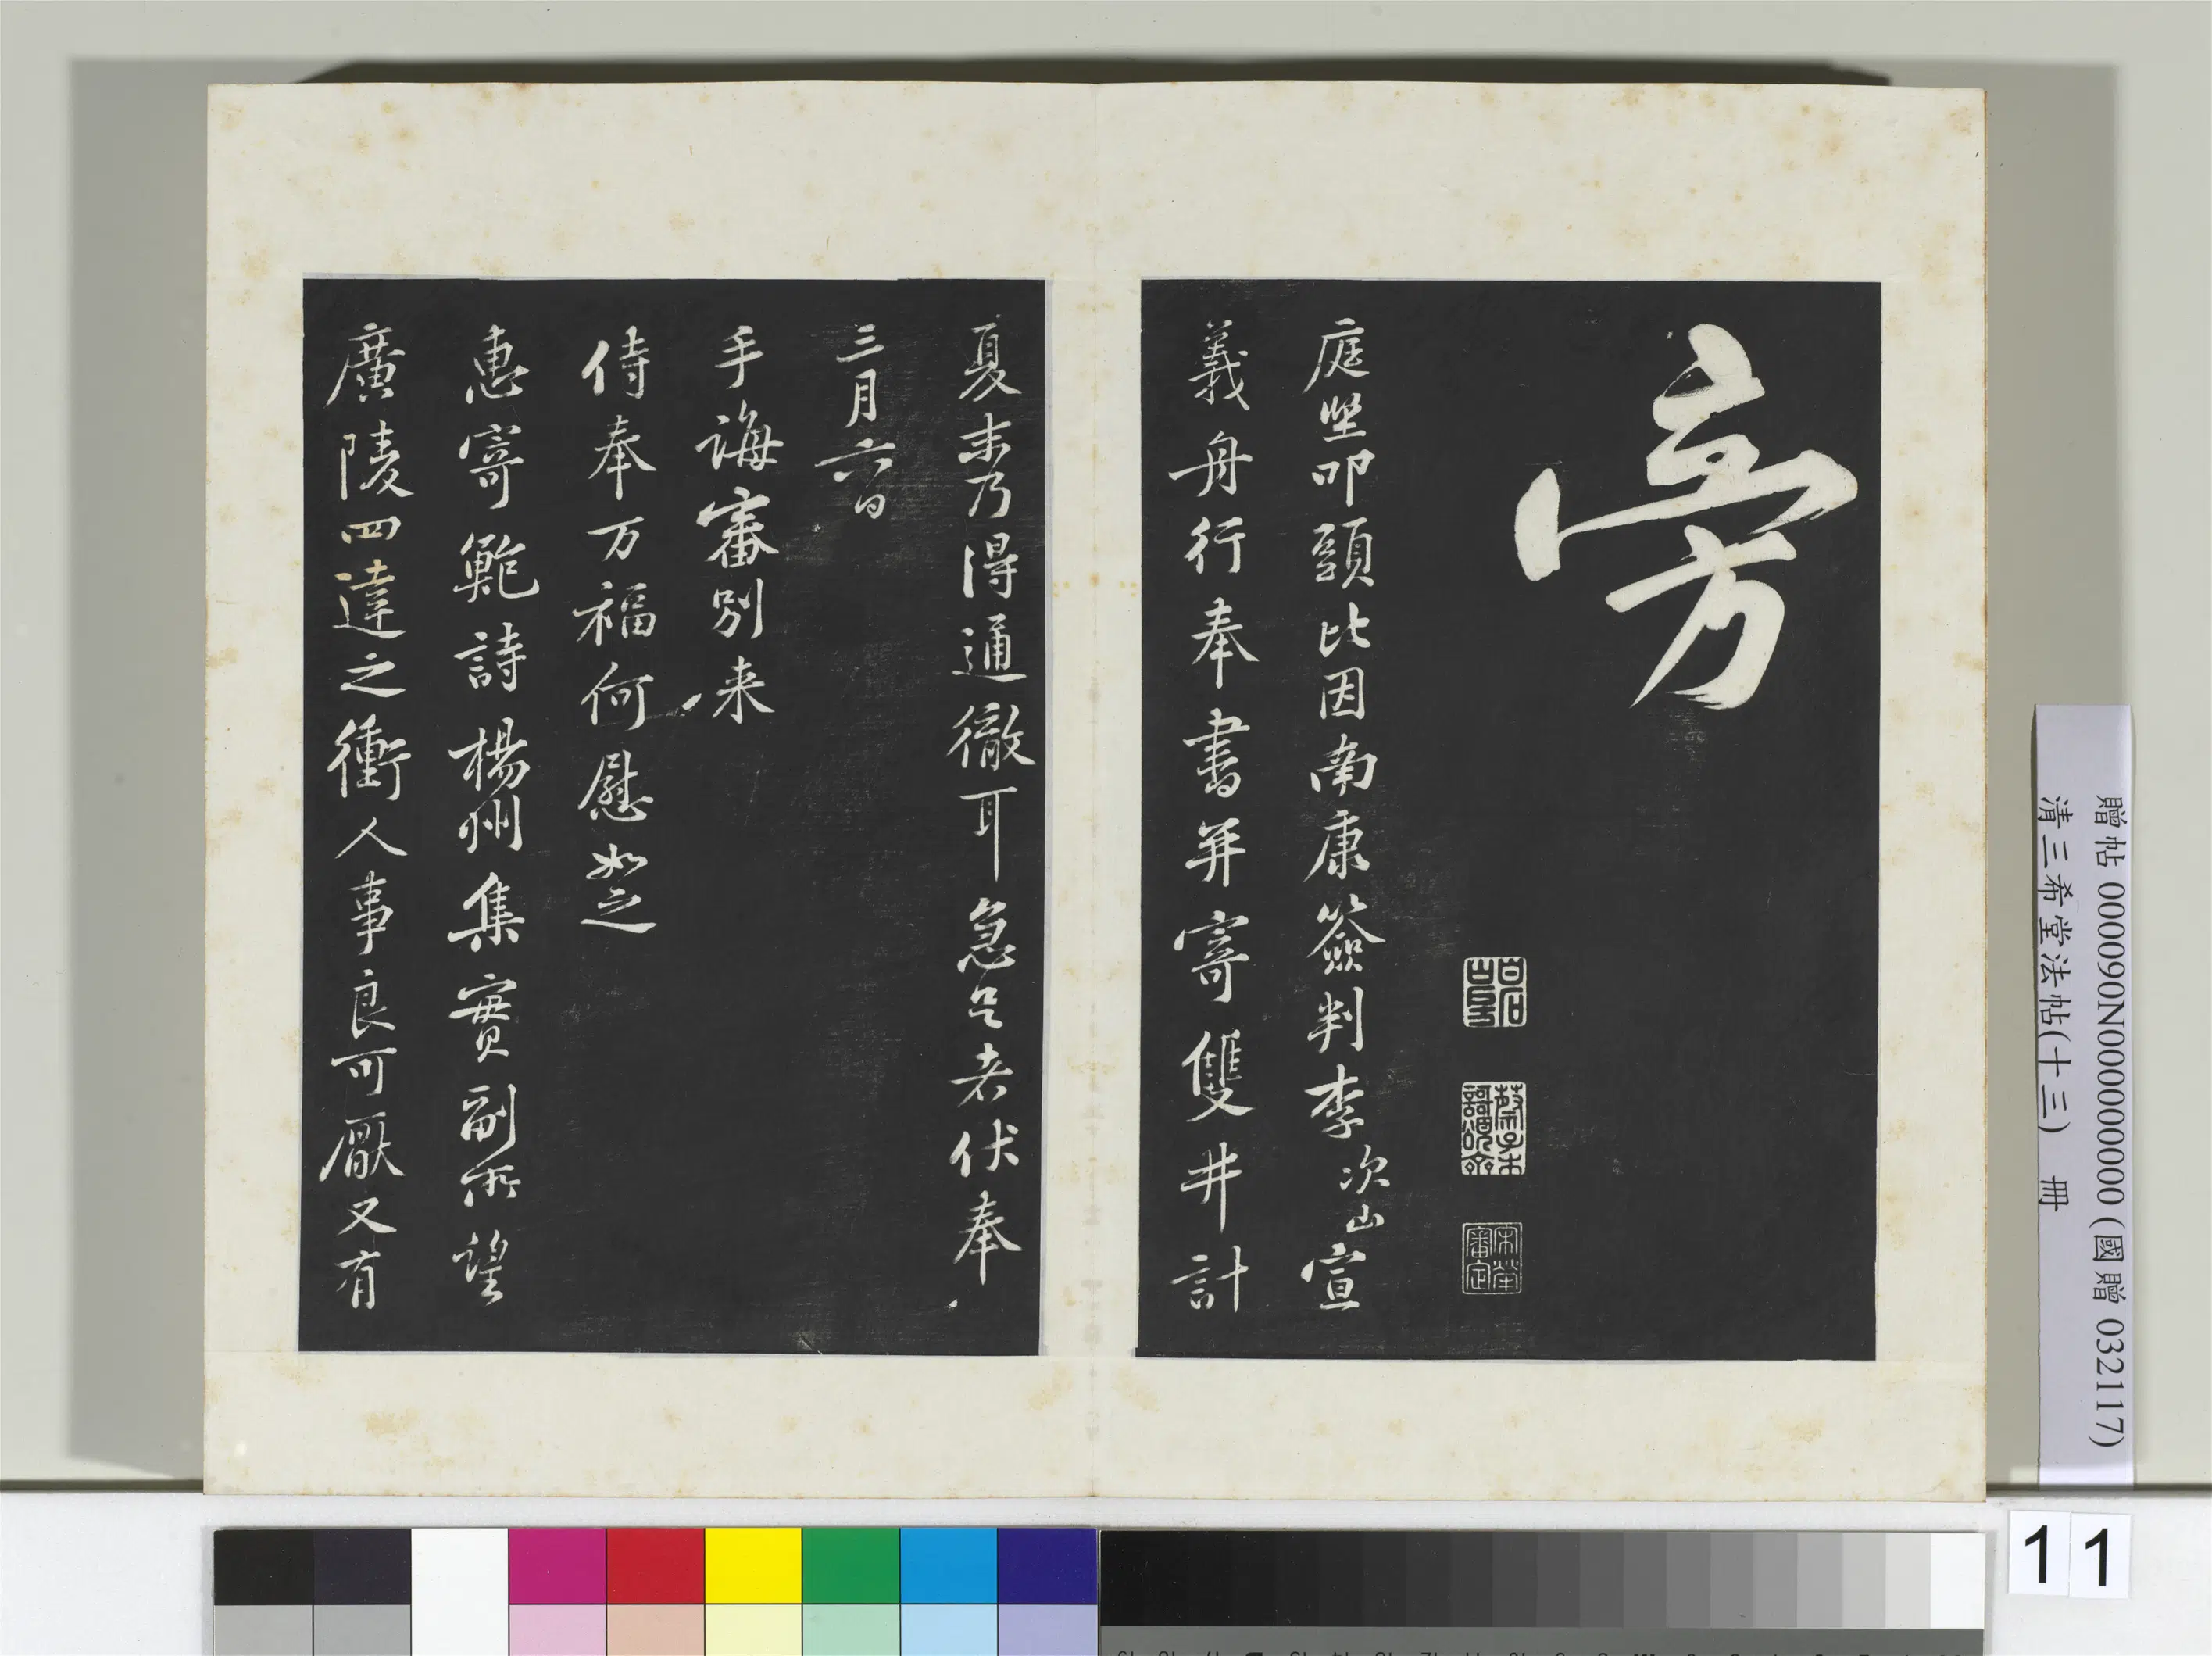 旁
庭堅叩頭比因南康簽判李次山宣
義舟行奉書并寄雙井計
夏末乃得通徹耳急足者伏奉
三月六日
手誨審別来
侍奉万福何慰如之
惠寄鮑詩楊州集實副所望
廣陵四達之衝人事良可厭又有
宋犖審定
贈帖 000090N000000000 (國贈 032117)
清三希堂法帖(十三) 冊
11